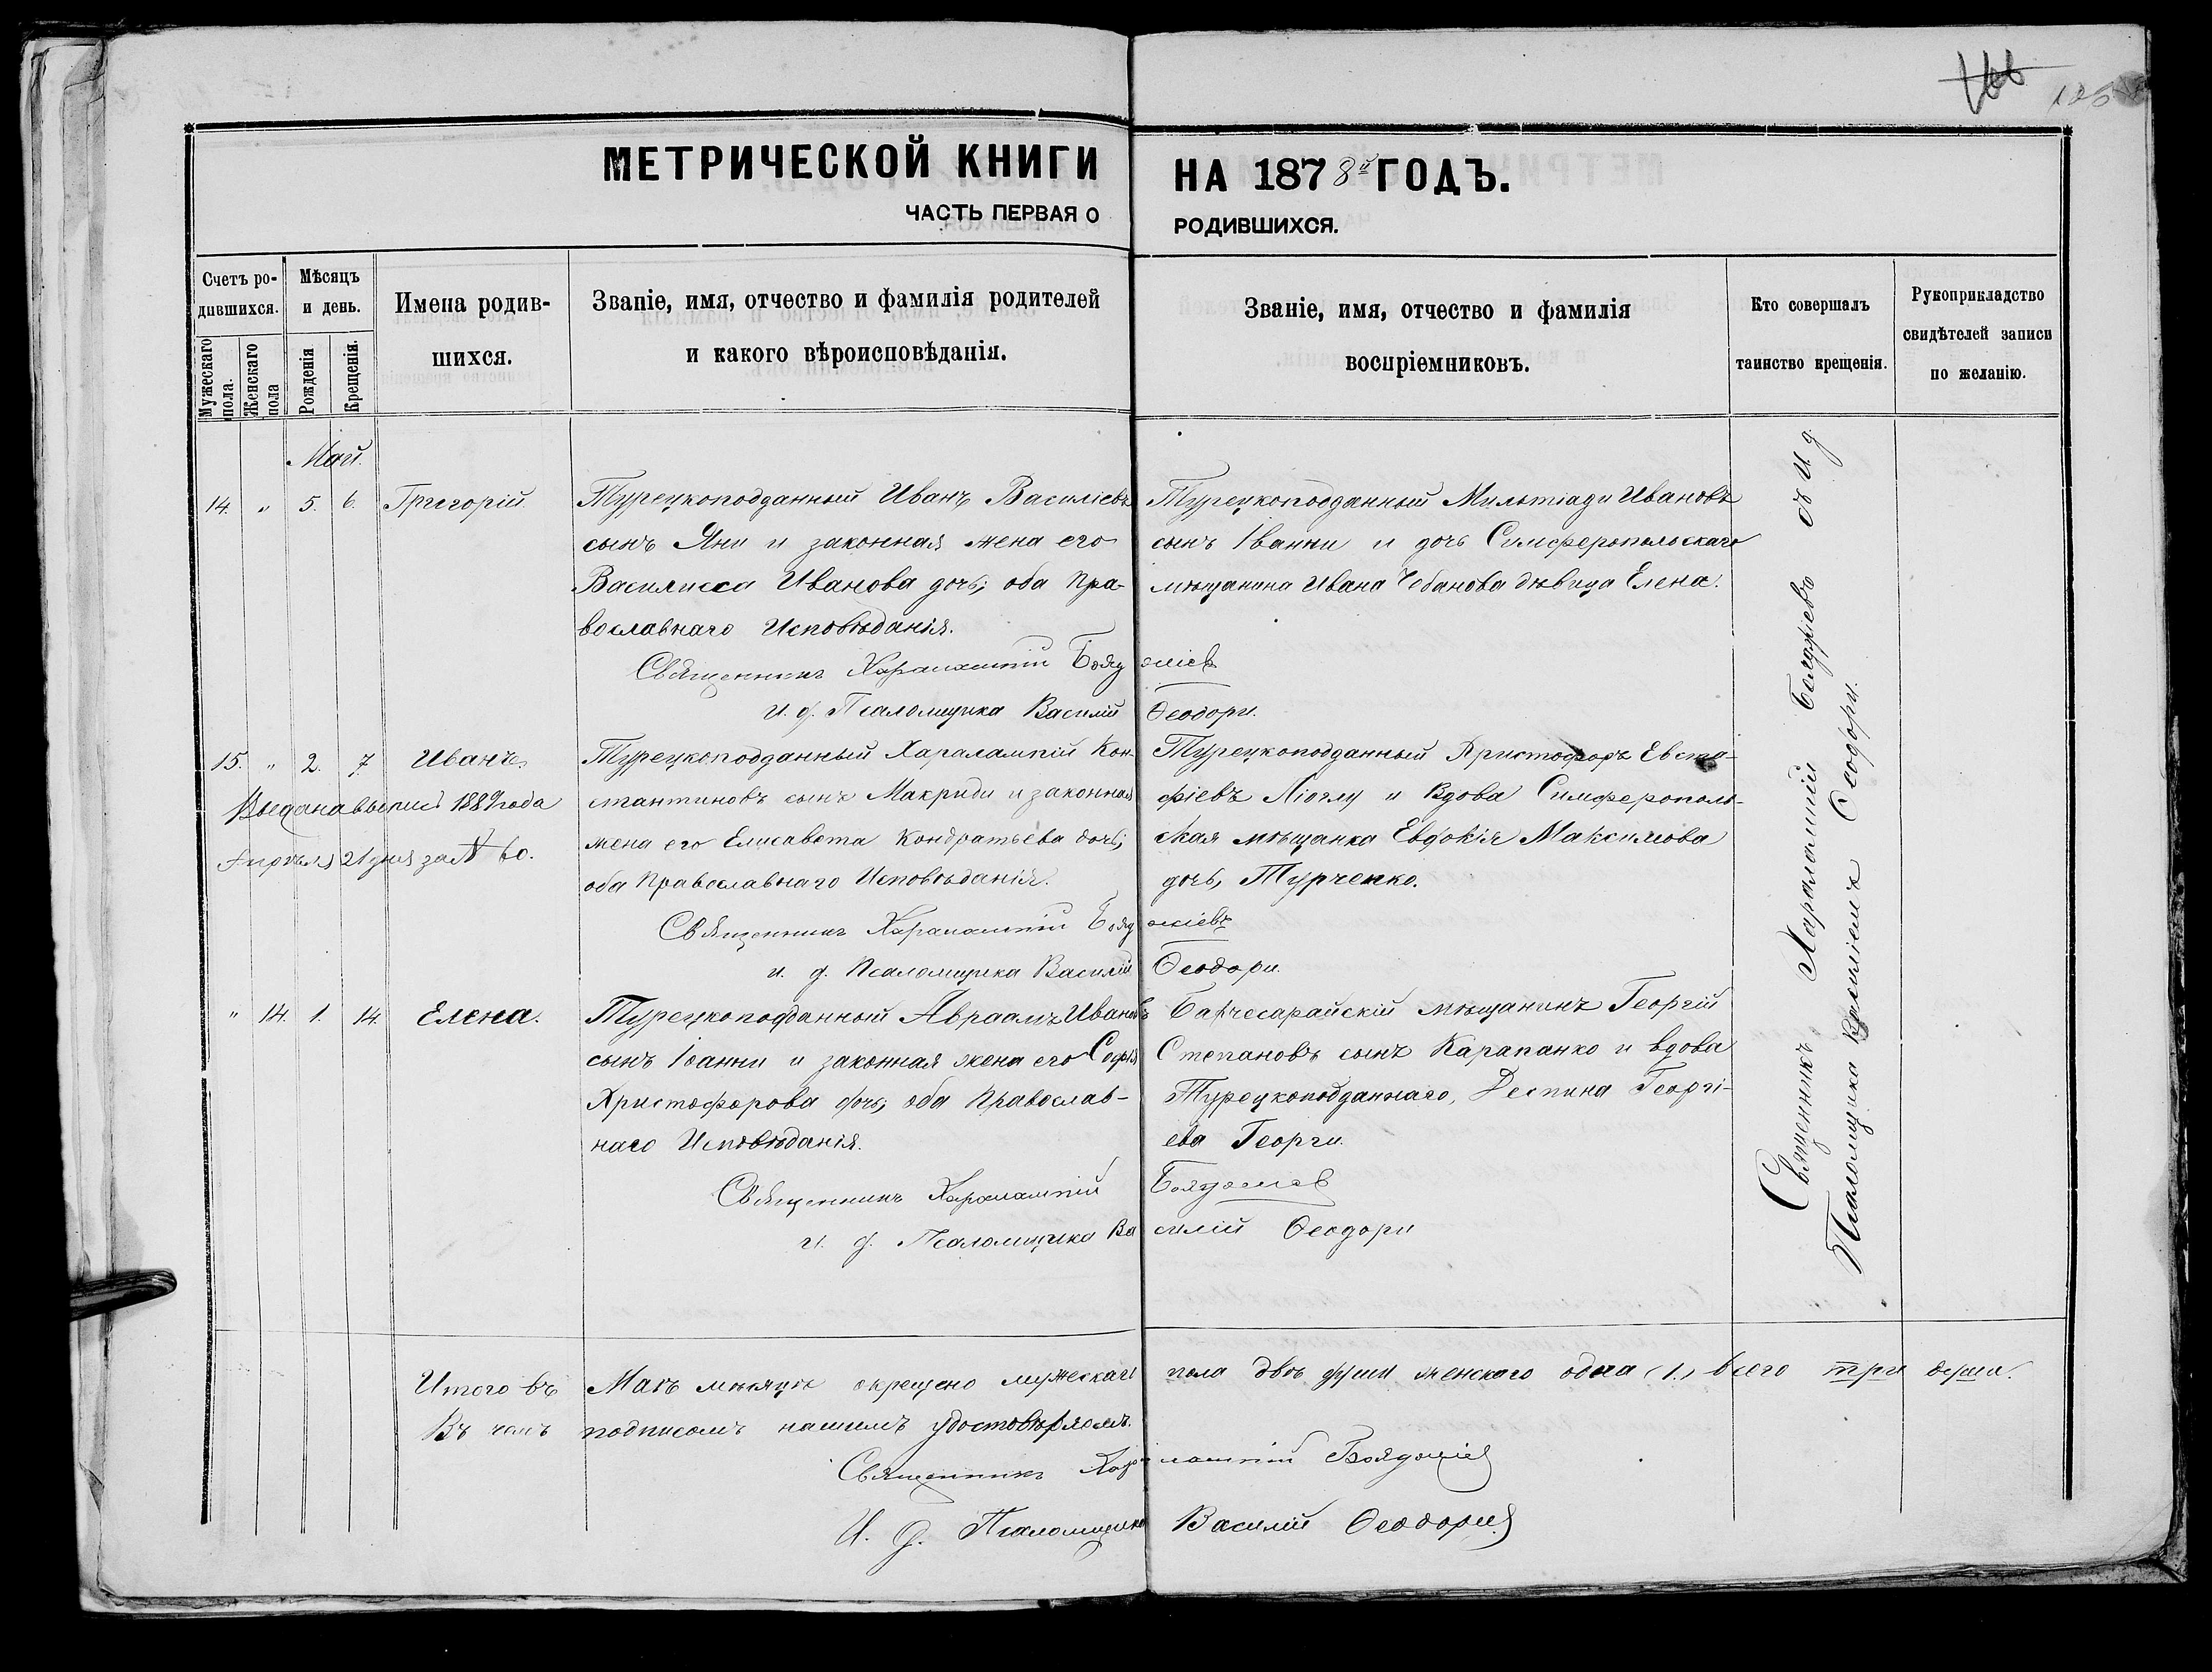 126
МЕТРИЧЕСКОЙ КНИГИ НА 1878й ГОДЪ.
ЧАСТЬ ПЕРВАЯ О РОДИВШИХСЯ.
Счетъ ро-
дившихся.
Мужескаго
пола.
Женскаго
пола
Мѣсяцъ
и день.
Рожденія
Крещенія.
Имена родив-
шихся.
Званіе, имя, отчество и фамилія родителей
и какого вѣроисповѣданія.
Званіе, имя, отчество и фамилія
воспріемниковъ.
Кто совершалъ
таинство крещенія.
Рукоприкладство
свидѣтелей записи
по желанію.
Май.
14. " 5. 6. Григорій
Турецкоподданный Иванъ Василіевъ
сынъ Яни и законная жена его
Василисса Иванова дочь; оба Пра-
вославнаго Исповѣданія.
Турецкоподданный Мильтіади Ивановъ
сынъ Іванни и дочь Симферопольскаго
мѣщанина Ивана Чобанова дѣвица Елена.
Священникъ Харалампій Бояджіевъ
и. д. Псаломщика Василій Ѳеодори.
15. " 2. 7. Иванъ.
Выдана выпись 1889 года
Апрѣля 21 дня за № 60.
Турецкоподданный Харалампій Кон-
стантиновъ сынъ Макриди и законная
жена его Елисавета Кондратьева дочь;
оба Православнаго Исповѣданія.
Турецкоподданный Христофоръ Евста-
фіевъ Ліоглу и Вдова Симферополь-
ская мѣщанка Евдокія Максимова
дочь, Турченко.
Священникъ Харалампій Бояджіевъ
и. д. Псаломщика Василій Ѳеодори.
" 14. 1. 14. Елена.
Турецкоподданный Авраамъ Ивановъ
сынъ Іоанни и законная жена его Софія
Христофорова дочь; оба Православ-
наго Исповѣданія.
Бахчесарайскій мѣщанинъ Георгій
Степановъ сынъ Карапанко и вдова
Турецкоподданнаго, Деспина Георгі-
ева Георги.
Священникъ Харалампій Бояджіев
и. д. Псаломщика Василій Ѳеодори
Священникъ Харалампій Бояджіевъ съ И. д.
Псаломщика Василіемъ Ѳеодори.
Итого въ Маѣ мѣсяцѣ окрещено мужескаго пола двѣ души женскаго одна (1.) всего три души.
Въ чемъ подписомъ нашимъ удостовѣряемъ.
Священникъ Харалампій Бояджіев
И. д. Псаломщика Василій Ѳеодори